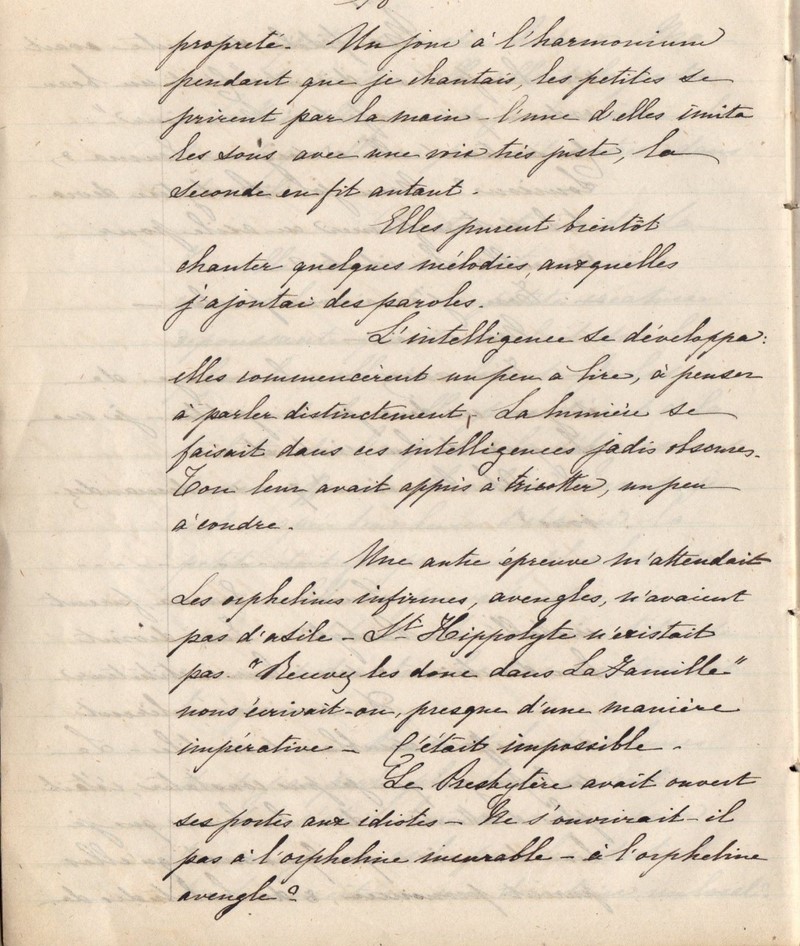 propreté. Un jour à l'harmonium
pendant que je chantais, les petites se
prirent par la main - l'une d'elles imita
les sons avec une voix très juste, la
seconde en fit autant.
Elles purent bientôt
chanter quelques mélodies auxquelles
j'ajoutai des paroles.
L'intelligence se développa:
elles commencèrent un peu à lire, à penser
à parler distinctement, La lumière se
faisait dans ces intelligences jadis obscures.
leur avait appris à tricotter, un peu
à coudre.
Une autre épreuve m'attendait
Les orphelines infirmes, aveugles, n'avaient
pas d'asile - St Hippolyte n'existait
pas. "Recevez les donc dans La Famille"
nous écrivait-on, presque d'une manière
impérative - C'était impossible.
Le Presbytère avait ouvert
ses portes aux idiotes - Ne s'ouvrirait-il
pas à l'orpheline incurable - à l'orpheline
aveugle?